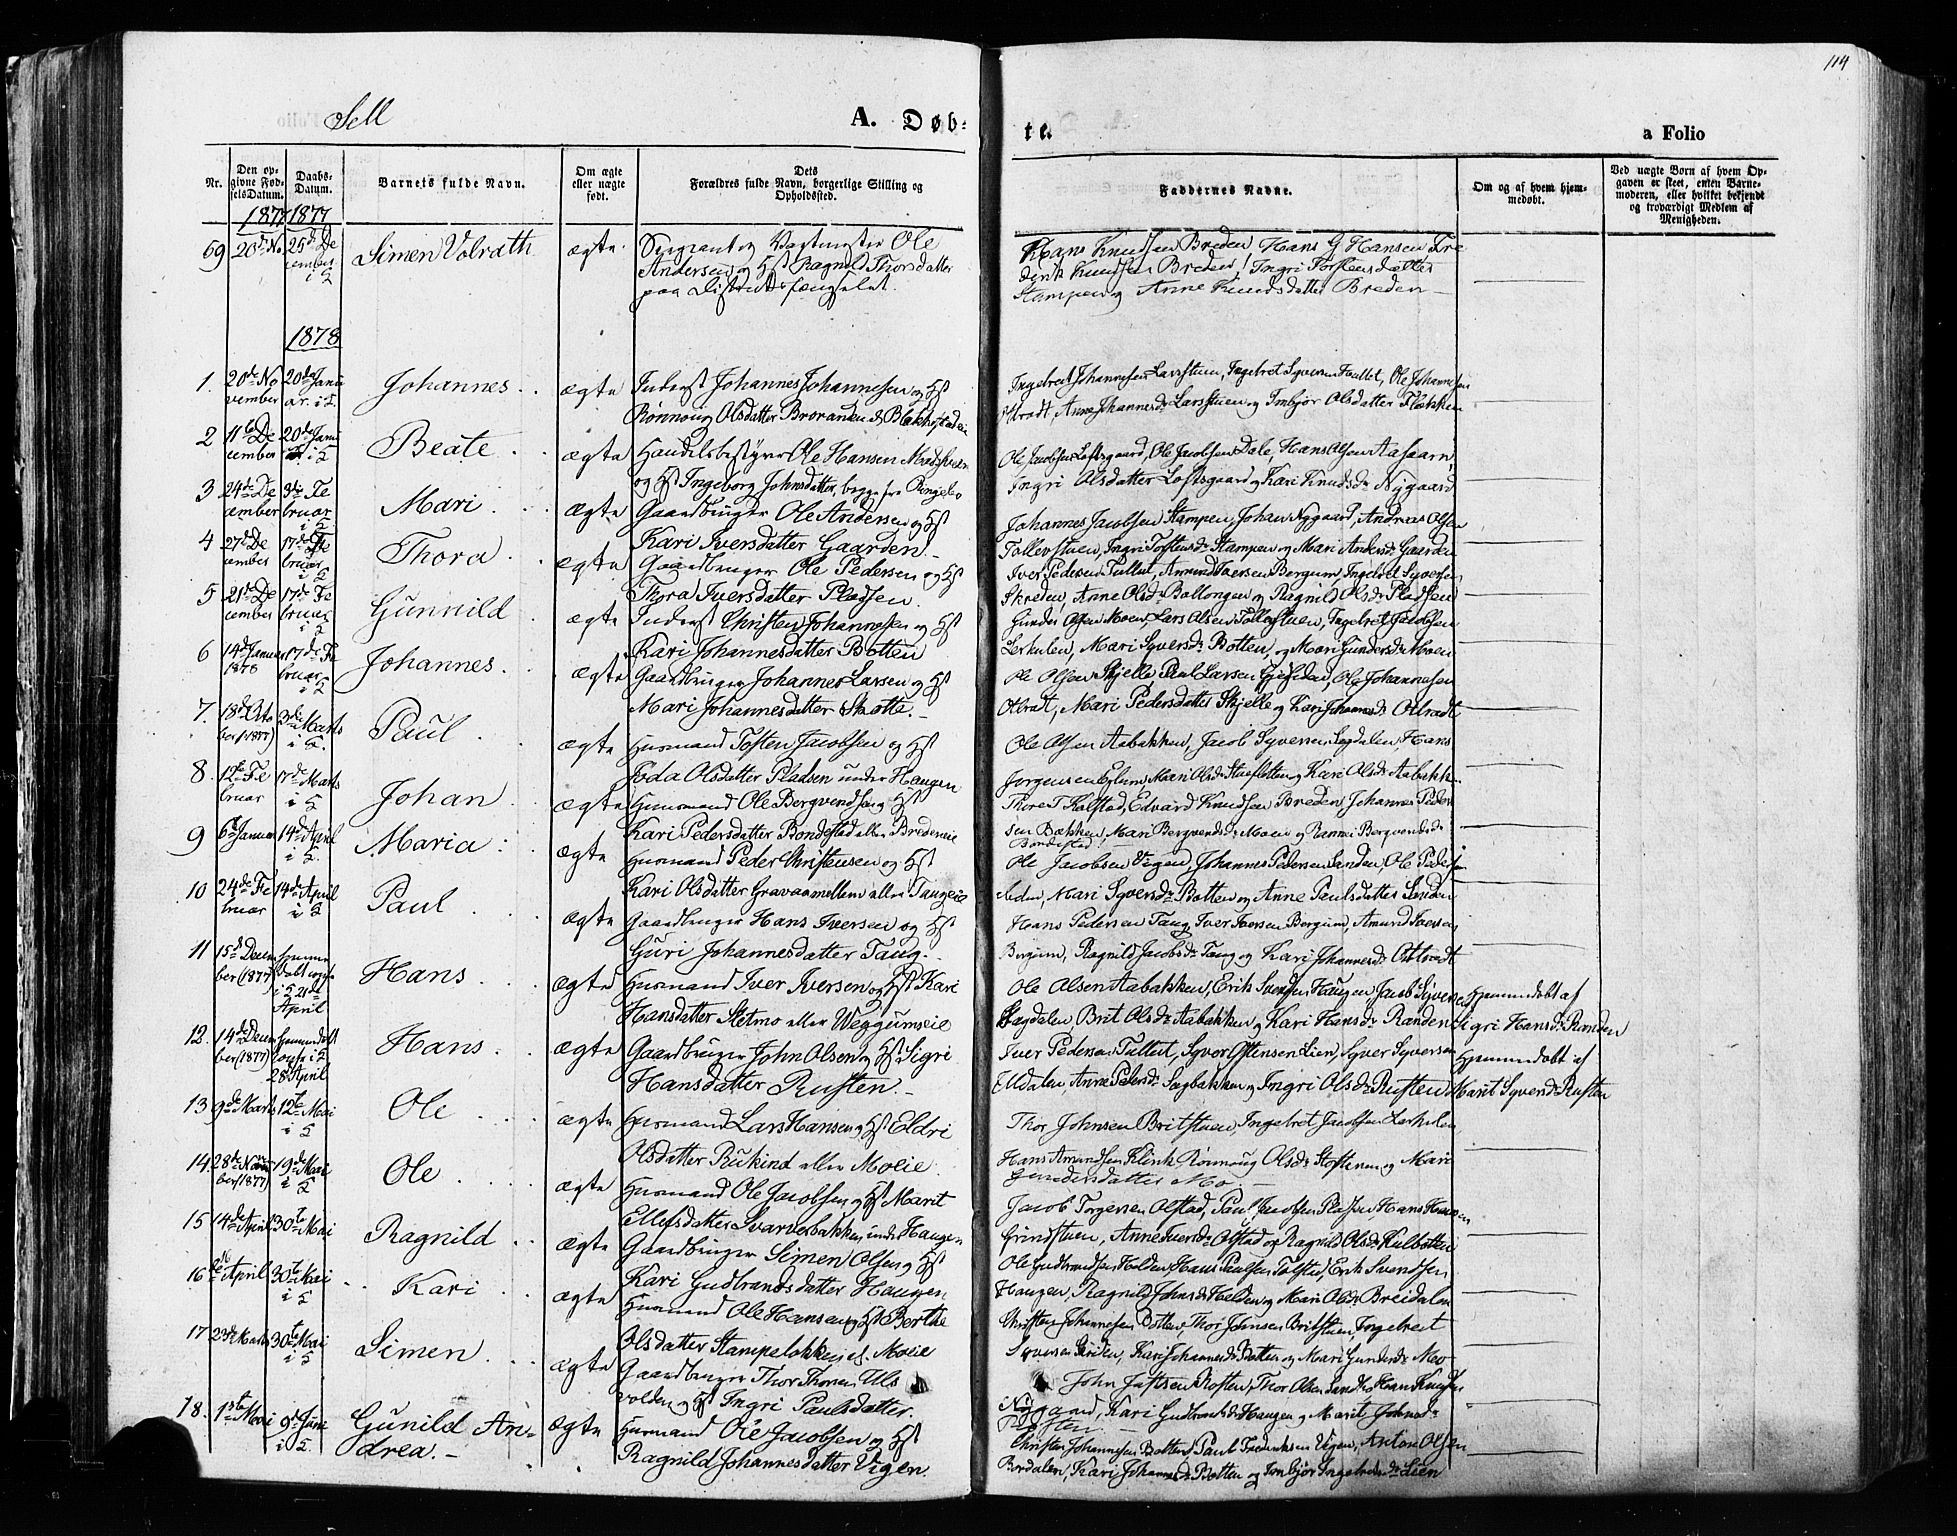 114
Sell
A. Døb-
te.
a Folio
Nr.
Den op-
givne Fød-
selsDatum.
Daabs-
Datum.
Barnets fulde Navn.
Om ægte
eller uægte
født.
Dets
Forældres fulde Navn, borgerlige Stilling og
Opholdssted.
Faddernes Navne.
Om og af hvem hjem-
medøbt.
Ved uægte Børn af hvem Op-
gaven er skeet, enten Barne-
moderen, eller hvilket bekjendt
og troværdigt Medlem af
Menigheden.
1877 1877
69 20de No 25de De
cember
i S
Simen Volrath
ægte
Sergeant og Vagtmester Ole
Andersen og Hst Ragnild Thorsdatter
paa Distriktsfængselet.
Hans Knudsen Breden, Hans G Hansen, Fre
derik Knudsen Breden, Ingri Torstensdatter
Stampen og Anne Knudsdatter Breden
1878
1. 20de No
vember
20de Janu
ar. i S.
Johannes
ægte
Inderst Johannes Johannesen og Hst
Rønnoug Olsdatter
Ingebret Johannesen Larsstuen, Ingebret Syversen Tullet, Ole Johannesen
Anne Johannesdr Larsstuen og Imbjør Olsdatter
2 11te De
cember
20de Janu
i S
Beate
ægte
Handelsbestyrer Ole Hansen
og Hst Ingeborg Johnsdatter, begge fra Ringebo
Ole Jacobsen Loftsgaard, Ole Jacobsen Dale, Hans Olsen Aasaaren,
Ingri Olsdatter Loftsgaard og Kari Knudsdr Nygaard
3 24de De
cember
3die Fe
bruar
i S
Mari
ægte
Gaardbruger Ole Andersen og Hst
Kari Iversdatter Gaarden.
Johannes Jacobsen Stampen, Johan Nygaard, Andreas Olsen
Tollevstuen, Ingri Torstensdr Stampen og Mari Andersdr Gaarden
4 27de De
cember
17de Fe
bruar
i S
Thora
ægte
Gaardbruger Ole Pedersen og Hst
Thora Iversdatter Pladsen.
Iver Pedersen Tullut, Amund Iversen Bergum, Ingebret Syversen
Skreden, Anne Olsdr Ballongen og Ragnild Olsdr Pladsen
5 21de De
cember
17de Fe
bruar
i S
Gunnild
ægte
Inderst Christen Johannesen og Hst
Kari Johannesdatter Botten
Gunder Olsen Moen, Lars Olsen Tollefstuen, Ingebret Jacobsen
Lerkulen, Mari Syversdr Botten og Mari Gundersdr Moen
6 14de Januar
1878
17de Fe
bruar
i S
Johannes
ægte
Gaardbruger Johannes Larsen og Hst
Mari Johannesdatter Skotte.
Ole Olsen Skjelle, Paul Larsen Ole Johannesen
Mari Pedersdatter Skjelle og Kari Johannesdr
7. 18de Octo
ber (1877)
3die Marts
i S.
Paul
ægte
Husmand Tosten Jacobsen og Hst
Joda Olsdatter Pladsen under Haugen
Ole Olsen Aabakken, Jacob Syversen Sagdalen, Hans
Jørgensen Mari Olsdr og Kari Olsdr Aabakken
8. 12te Fe
bruar
17de Marts
i S
Johan
ægte
Husmand Ole Bergvendsen og Hst
Kari Pedersdatter Bondestad
Thore T Kalstad, Edvard Knudsen Breden, Johannes Peder
sen Bakken, Mari Bergvendsdr Moen og Ranni Bergvendsdr
Bondestad
9 6te Januar
14de April
i S.
Maria
ægte
Husmand Peder Christensen og Hst
Kari Olsdatter Gravaamellem eller
Ole Jacobsen Vigen, Johannes Pedersen Sanden, Ole Pedersen
Mari Syversdr Botten og Anne Paulsdatter Sanden
10 24de Fe
bruar
14de April
i S
Paul
ægte
Gaardbruger Hans Iversen og Hst
Guri Johannesdatter Taug.
Hans Pedersen Taug, Iver Iversen Bergum, Amund Iversen
Bergum, Ragnild Jacobsdr Taug og Kari Johannesdr
11 15de Decem
ber (1877)
i S 21de
April
Hans
ægte
Husmand Iver Iversen og Hst Kari
Hansdatter Sletmo eller
Ole Olsen Aabakken, Erik Svendsen Haugen, Jacob Syversen
Sagdalen, Brit Olsdr Aabakken og Kari Hansdr Randen
Hjemmedøbt af
Sigri Hansdr Randen
12. 14de Decem
ber (1877)
Hjemmedøbt
i S
28 April
Hans
ægte
Gaardbruger John Olsen og Hst Sigri
Hansdatter Rusten.
Iver Pedersen Tullut, Syver Lien, Syver Syversen
Uldalen, Anne Pedersdr Sagbakken og Ingri Olsdr Rusten
Hjemmedøbt af
Marit Syversdr Rusten
13 9de Marts 12te Mai
i S
Ole
ægte
Husmand Lars Hansen og Hst Eldri
Olsdatter Rukind eller Moeie.
Thor Johnsen Britstuen, Ingebret Jacobsen Lerkulen
Hans Amundsen Klink, Rønnoug Olsdr og Mari
Gundersdatter Mo.
14. 28de Novem
ber (1877)
19de Mai
i S
Ole
ægte
Husmand Ole Jacobsen og Hst Marit
Ellefsdatter Svarverbakken under Haugen
Jacob Torgersen Olstad, Paul Jacobsen Pladsen, Hans Hansen
Grindstuen, Anne Iversdr Olstad og Ragnild Olsdr Kulbotten
15 14de April 30te Mai
Ragnild
ægte
Gaardbruger Simen Olsen og Hst
Kari Gudbrandsdatter Haugen
Ole Gudbrandsen Holden, Hans Paulsen Tolstad, Erik Svendsen
Haugen, Ragnild Johnsdr Holden og Mari Olsdr Breidalen
16 April 30te Mai
i S
Kari
ægte
Husmand Ole Hansen og Hst Berthe
Olsdatter Stampeløkken el. Moeie
Christen Johannesen Botten, Thor Johnsen Britstuen, Ingebret
Syversen Kari Johannesdr Botten og Mari Gundersdr Mo
17 23de Marts 30te Mai
i S
Simen
ægte
Gaardbruger Thor Thoresen Uls
volden og Hst Ingri Paulsdatter.
John Rosten, Thor Olsen Hans Knudsen
Nygaard, Kari Gudbrandsdr Haugen og Marit Johnsdr
18. 1ste Mai
9de Juni
i S.
Gunild An-
drea. -
ægte
Husmand Ole Jacobsen og Hst
Ragnild Johannesdatter Vigen.
Christen Johannesen Botten, Paul Frederiksen Vigen, Anton Olsen
Bredalen, Kari Johannesdr Botten og Imbjør Ingebretsdr Lien